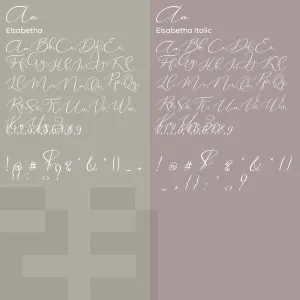 Aa
Elsabetha
Aa Bb Cc Dd Ee
Ff Gg Hh Ii Jj Kk
Ll Mm Nn Oo Pp Qq
Rr Ss Tt Uu Vv Ww
Xx Yy Zz
1,2,3,4,5,6,7,8,9
Aa
Elsabetha Italic
Aa Bb Cc Dd Ee
Ff Gg Hh Ii Jj Kk
Ll Mm Nn Oo Pp Qq
Rr Ss Tt Uu Vv Ww
Xx Yy Zz
1,2,3,4,5,6,7,8,9